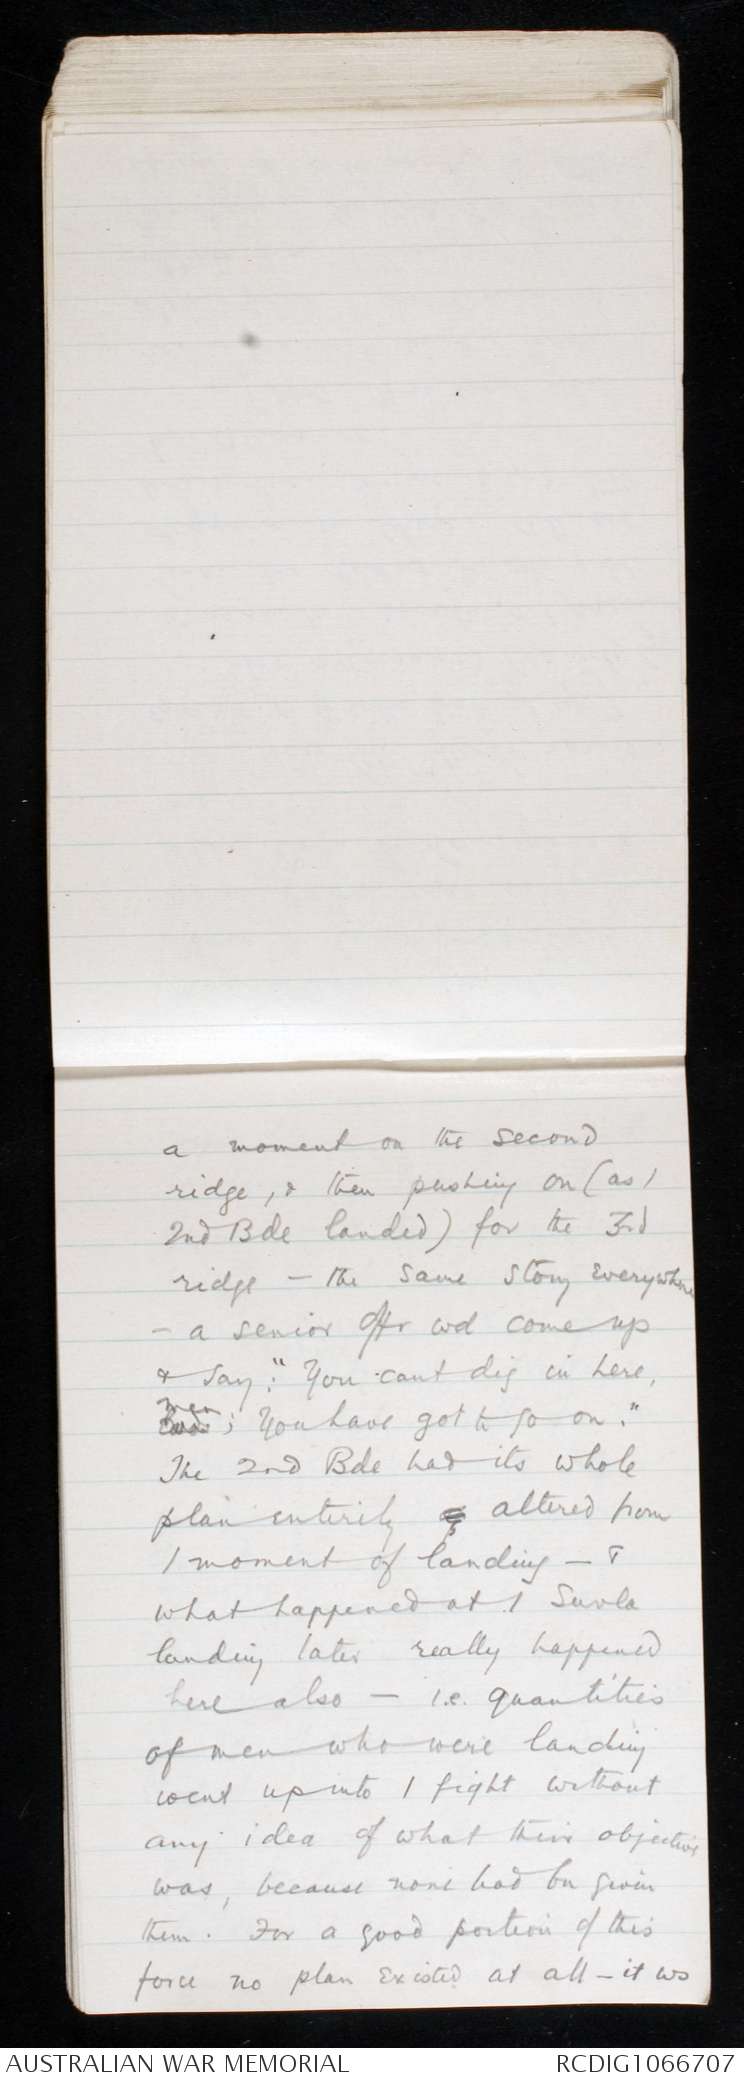 a moment on the second
ridge, & then pushing on (as /
2nd Bde landed) for the 3rd
ridge – the same story everywhere
– a senior offr wd come up
& say: "You can't dig in here,
men
; You have got to go on."
The 2nd Bde had its whole
plan entirely altered from
/ moment of landing – &
what happened at / Suvla
landing later really happened
here also – i.e. quantities
of men who were landing
went up into / fight without
any idea of what their objective
was, because none had bn given
them. For a good portion of this
force no plan existed at all – it ws
AUSTRALIAN WAR MEMORIAL
RCDIG1066707